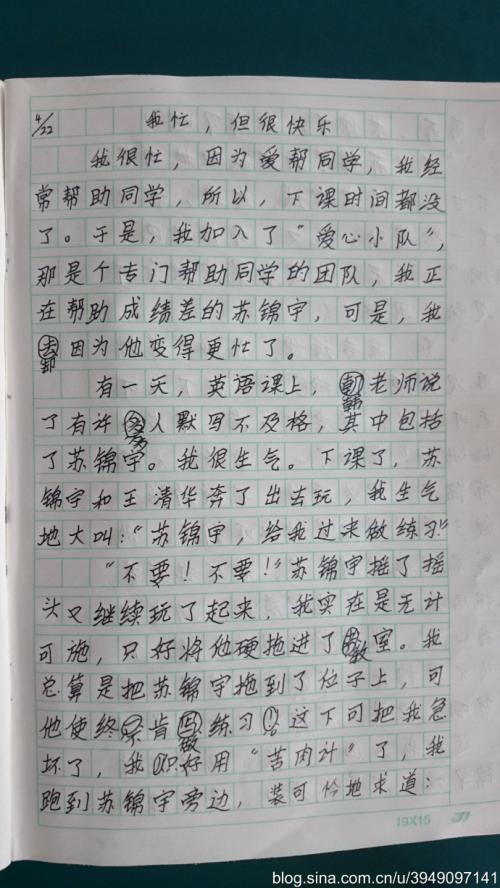 4/22 我忙，但很快乐
我很忙，因为爱帮同学，我经
常帮助同学，所以，下课时间都没
了。于是，我加入了“爱心小队”，
那是个专门帮助同学的团队，我正
在帮助成绩差的苏锦宇，可是，我
却因为他变得更忙了。
有一天，英语课上，韩老师说
了有许多人默写不及格，其中包括
了苏锦宇。我很生气。下课了，苏
锦宇和王清华奔了出去玩，我生气
地大叫：“苏锦宇，给我过来做练习”
“不要！不要！”苏锦宇摇了摇
头又继续玩了起来，我实在是无计
可施，只好将他硬拖进了教室。我
总算是把苏锦宇拖到了位子上，可
他使终不肯做练习。这下可把我急
坏了，我只好用“苦肉计”了，我
跑到苏锦宇旁边，装可怜地求道：
19X15
blog.sina.com.cn/u/3949097141